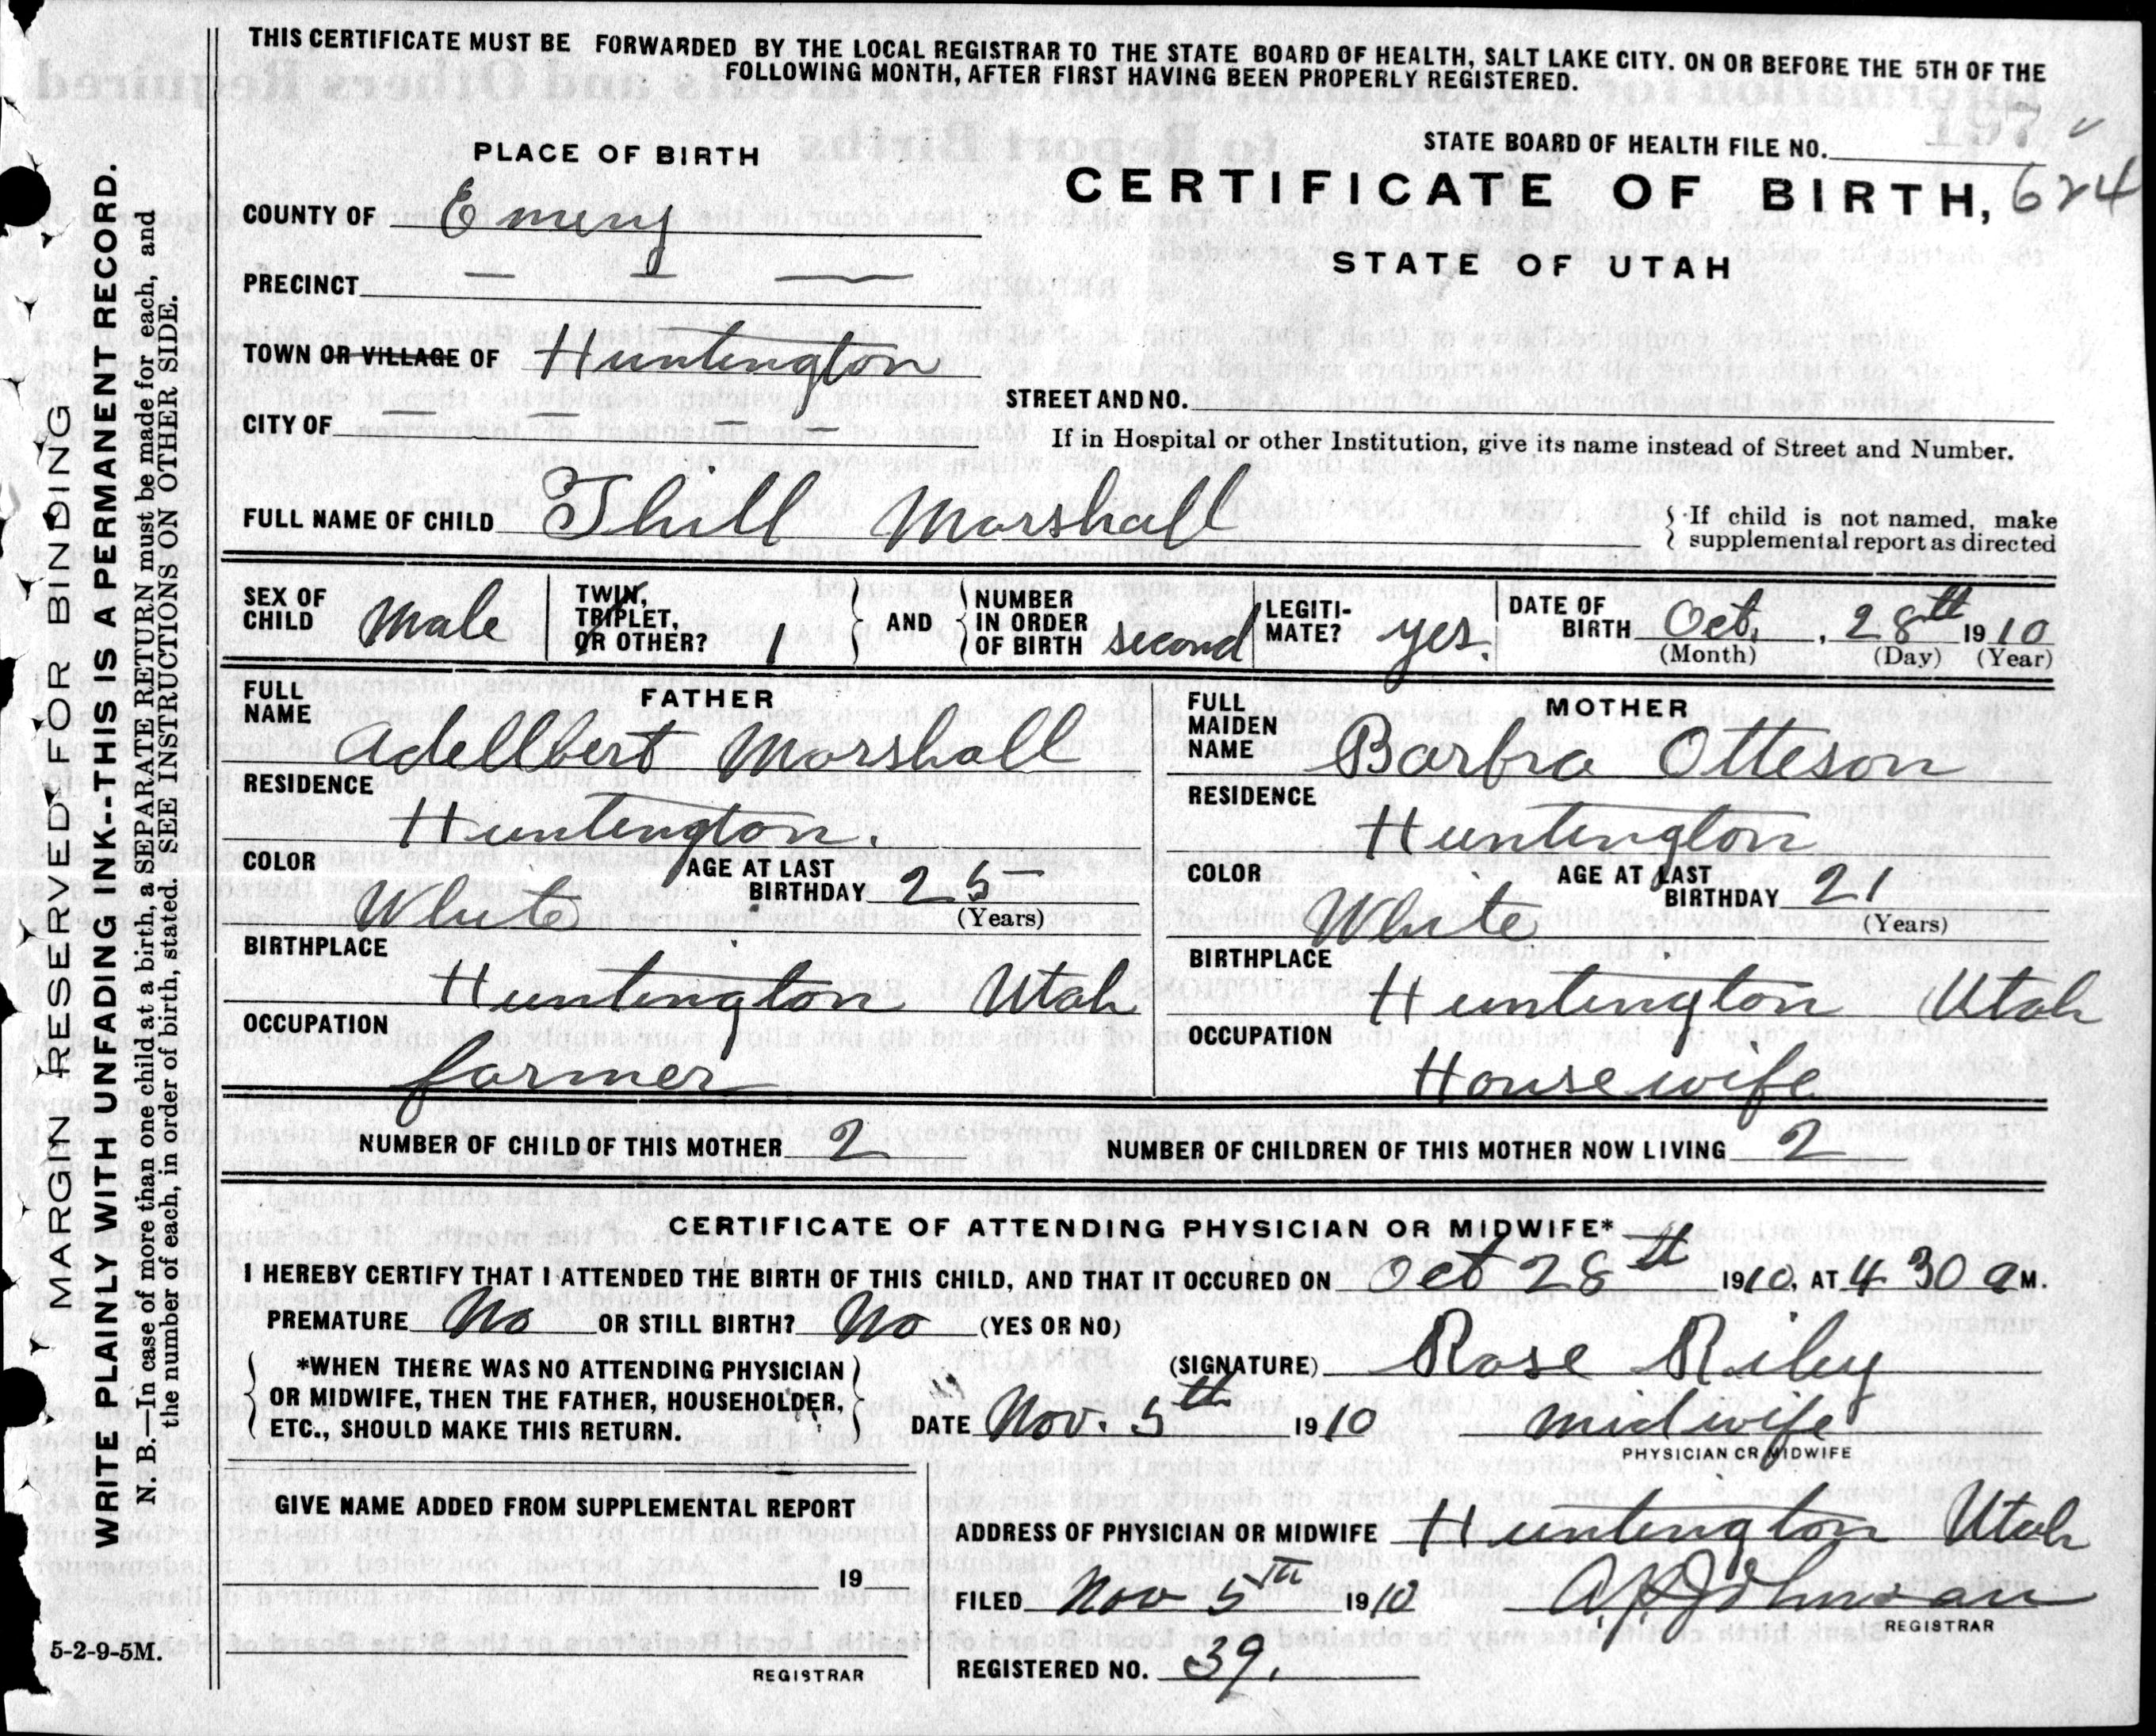 THIS CERTIFICATE MUST BE FORWARDED BY THE LOCAL REGISTRAR TO THE STATE BOARD OF HEALTH, SALT LAKE CITY. ON OR BEFORE THE 5TH OF THE
FOLLOWING MONTH, AFTER FIRST HAVING BEEN PROPERLY REGISTERED.
PLACE OF BIRTH
STATE BOARD OF HEALTH FILE NO.
CERTIFICATE OF BIRTH, 624
STATE OF UTAH
COUNTY OF Emery
PRECINCT
TOWN OR VILLAGE OF Huntington
CITY OF
STREET AND NO.
If in Hospital or other Institution, give its name instead of Street and Number.
FULL NAME OF CHILD Thill Marshall
If child is not named, make
supplemental report as directed
SEX OF CHILD Male
TWIN, TRIPLET, OR OTHER? 1
AND
NUMBER IN ORDER OF BIRTH second
LEGITI-MATE? yes.
DATE OF BIRTH Oct. 28th 1910
(Month) (Day) (Year)
FATHER
FULL NAME Adellbert Marshall
RESIDENCE
Huntington.
COLOR White
AGE AT LAST BIRTHDAY 25
(Years)
BIRTHPLACE
Huntington Utah
OCCUPATION
farmer
MOTHER
FULL MAIDEN NAME Barbra Otteson
RESIDENCE
Huntington
COLOR White
AGE AT LAST BIRTHDAY 21
(Years)
BIRTHPLACE
Huntington Utah
OCCUPATION
Housewife
NUMBER OF CHILD OF THIS MOTHER 2
NUMBER OF CHILDREN OF THIS MOTHER NOW LIVING 2
CERTIFICATE OF ATTENDING PHYSICIAN OR MIDWIFE*
I HEREBY CERTIFY THAT I ATTENDED THE BIRTH OF THIS CHILD, AND THAT IT OCCURED ON Oct 28th 1910, AT 4 30 a M.
PREMATURE No OR STILL BIRTH? No (YES OR NO)
*WHEN THERE WAS NO ATTENDING PHYSICIAN
OR MIDWIFE, THEN THE FATHER, HOUSEHOLDER,
ETC., SHOULD MAKE THIS RETURN.
(SIGNATURE) Rose Riley
DATE Nov. 5th 1910
midwife
PHYSICIAN OR MIDWIFE
GIVE NAME ADDED FROM SUPPLEMENTAL REPORT
19
REGISTRAR
ADDRESS OF PHYSICIAN OR MIDWIFE Huntington Utah
FILED Nov 5TH 1910
Johnson
REGISTRAR
REGISTERED NO. 39.
MARGIN RESERVED FOR BINDING
WRITE PLAINLY WITH UNFADING INK--THIS IS A PERMANENT RECORD.
N. B.—In case of more than one child at a birth, a SEPARATE RETURN must be made for each, and
the number of each, in order of birth, stated. SEE INSTRUCTIONS ON OTHER SIDE.
5-2-9-5M.